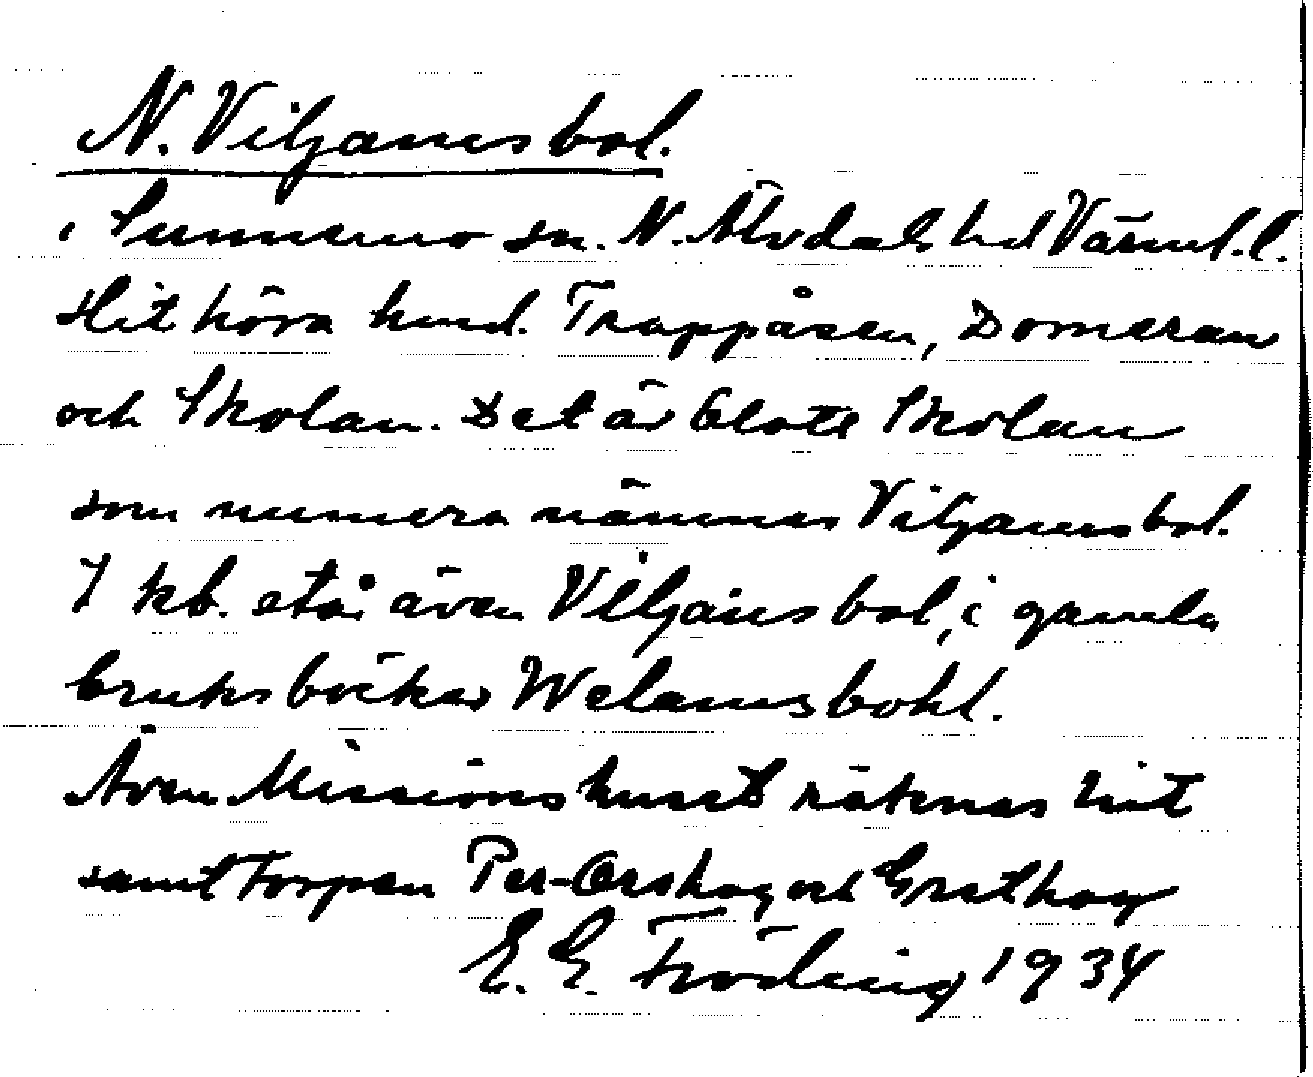 N. Viljamsbol.
i Sunnemo sn. N. Älvdals hd Värml. l.
Hit höra hmd. Trappåsen, Domeran
och Skolan. Det är blott Skolan
som numera nämnes Viljamsbol.
I kb. står även Viljansbol, i gamla
bruksböcker Welamsbohl.
Även Missionshuset räknas hit
samt torpen Per-Ors hag och Grathag
E. G. Fröding 1934